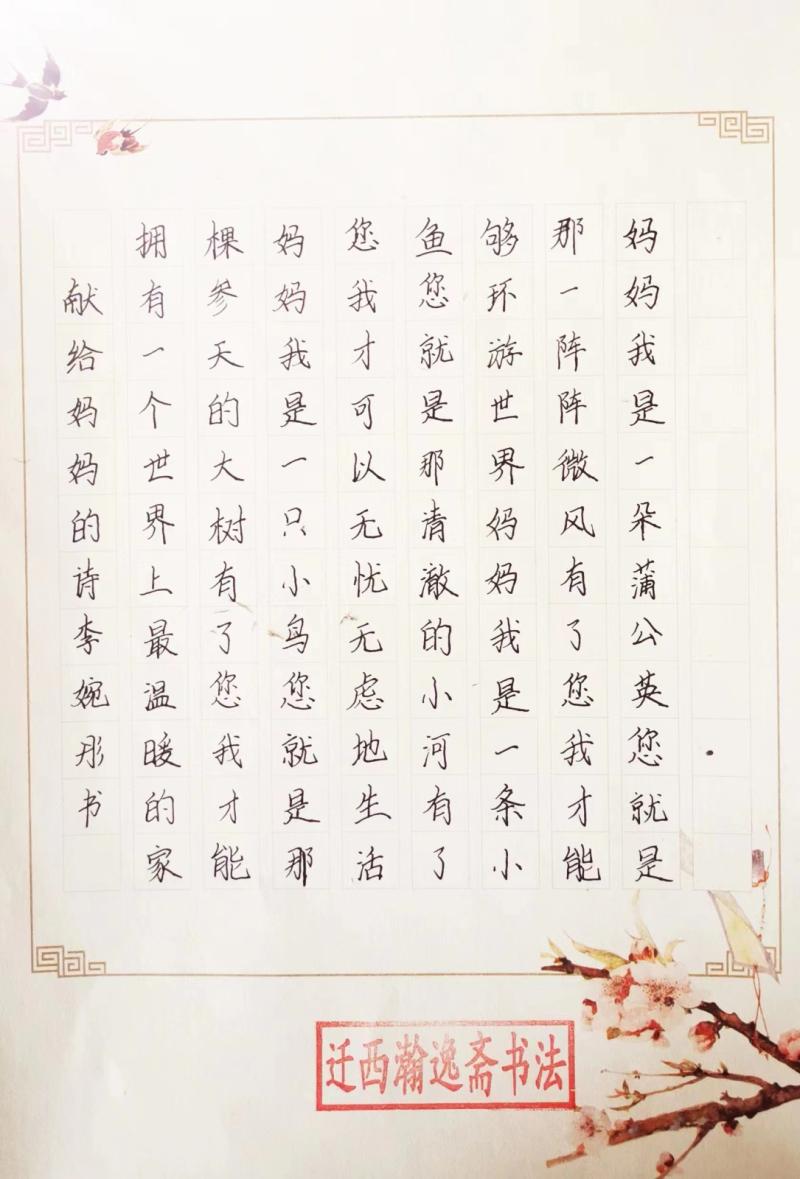 妈妈我是一朵蒲公英您就是
那一阵阵微风有了您我才能
够环游世界妈妈我是一条小
鱼您就是那清澈的小河有了
您我才可以无忧无虑地生活
妈妈我是一只小鸟您就是那
棵参天的大树有了您我才能
拥有一个世界上最温暖的家
献给妈妈的诗李婉彤书
迁西瀚逸斋书法